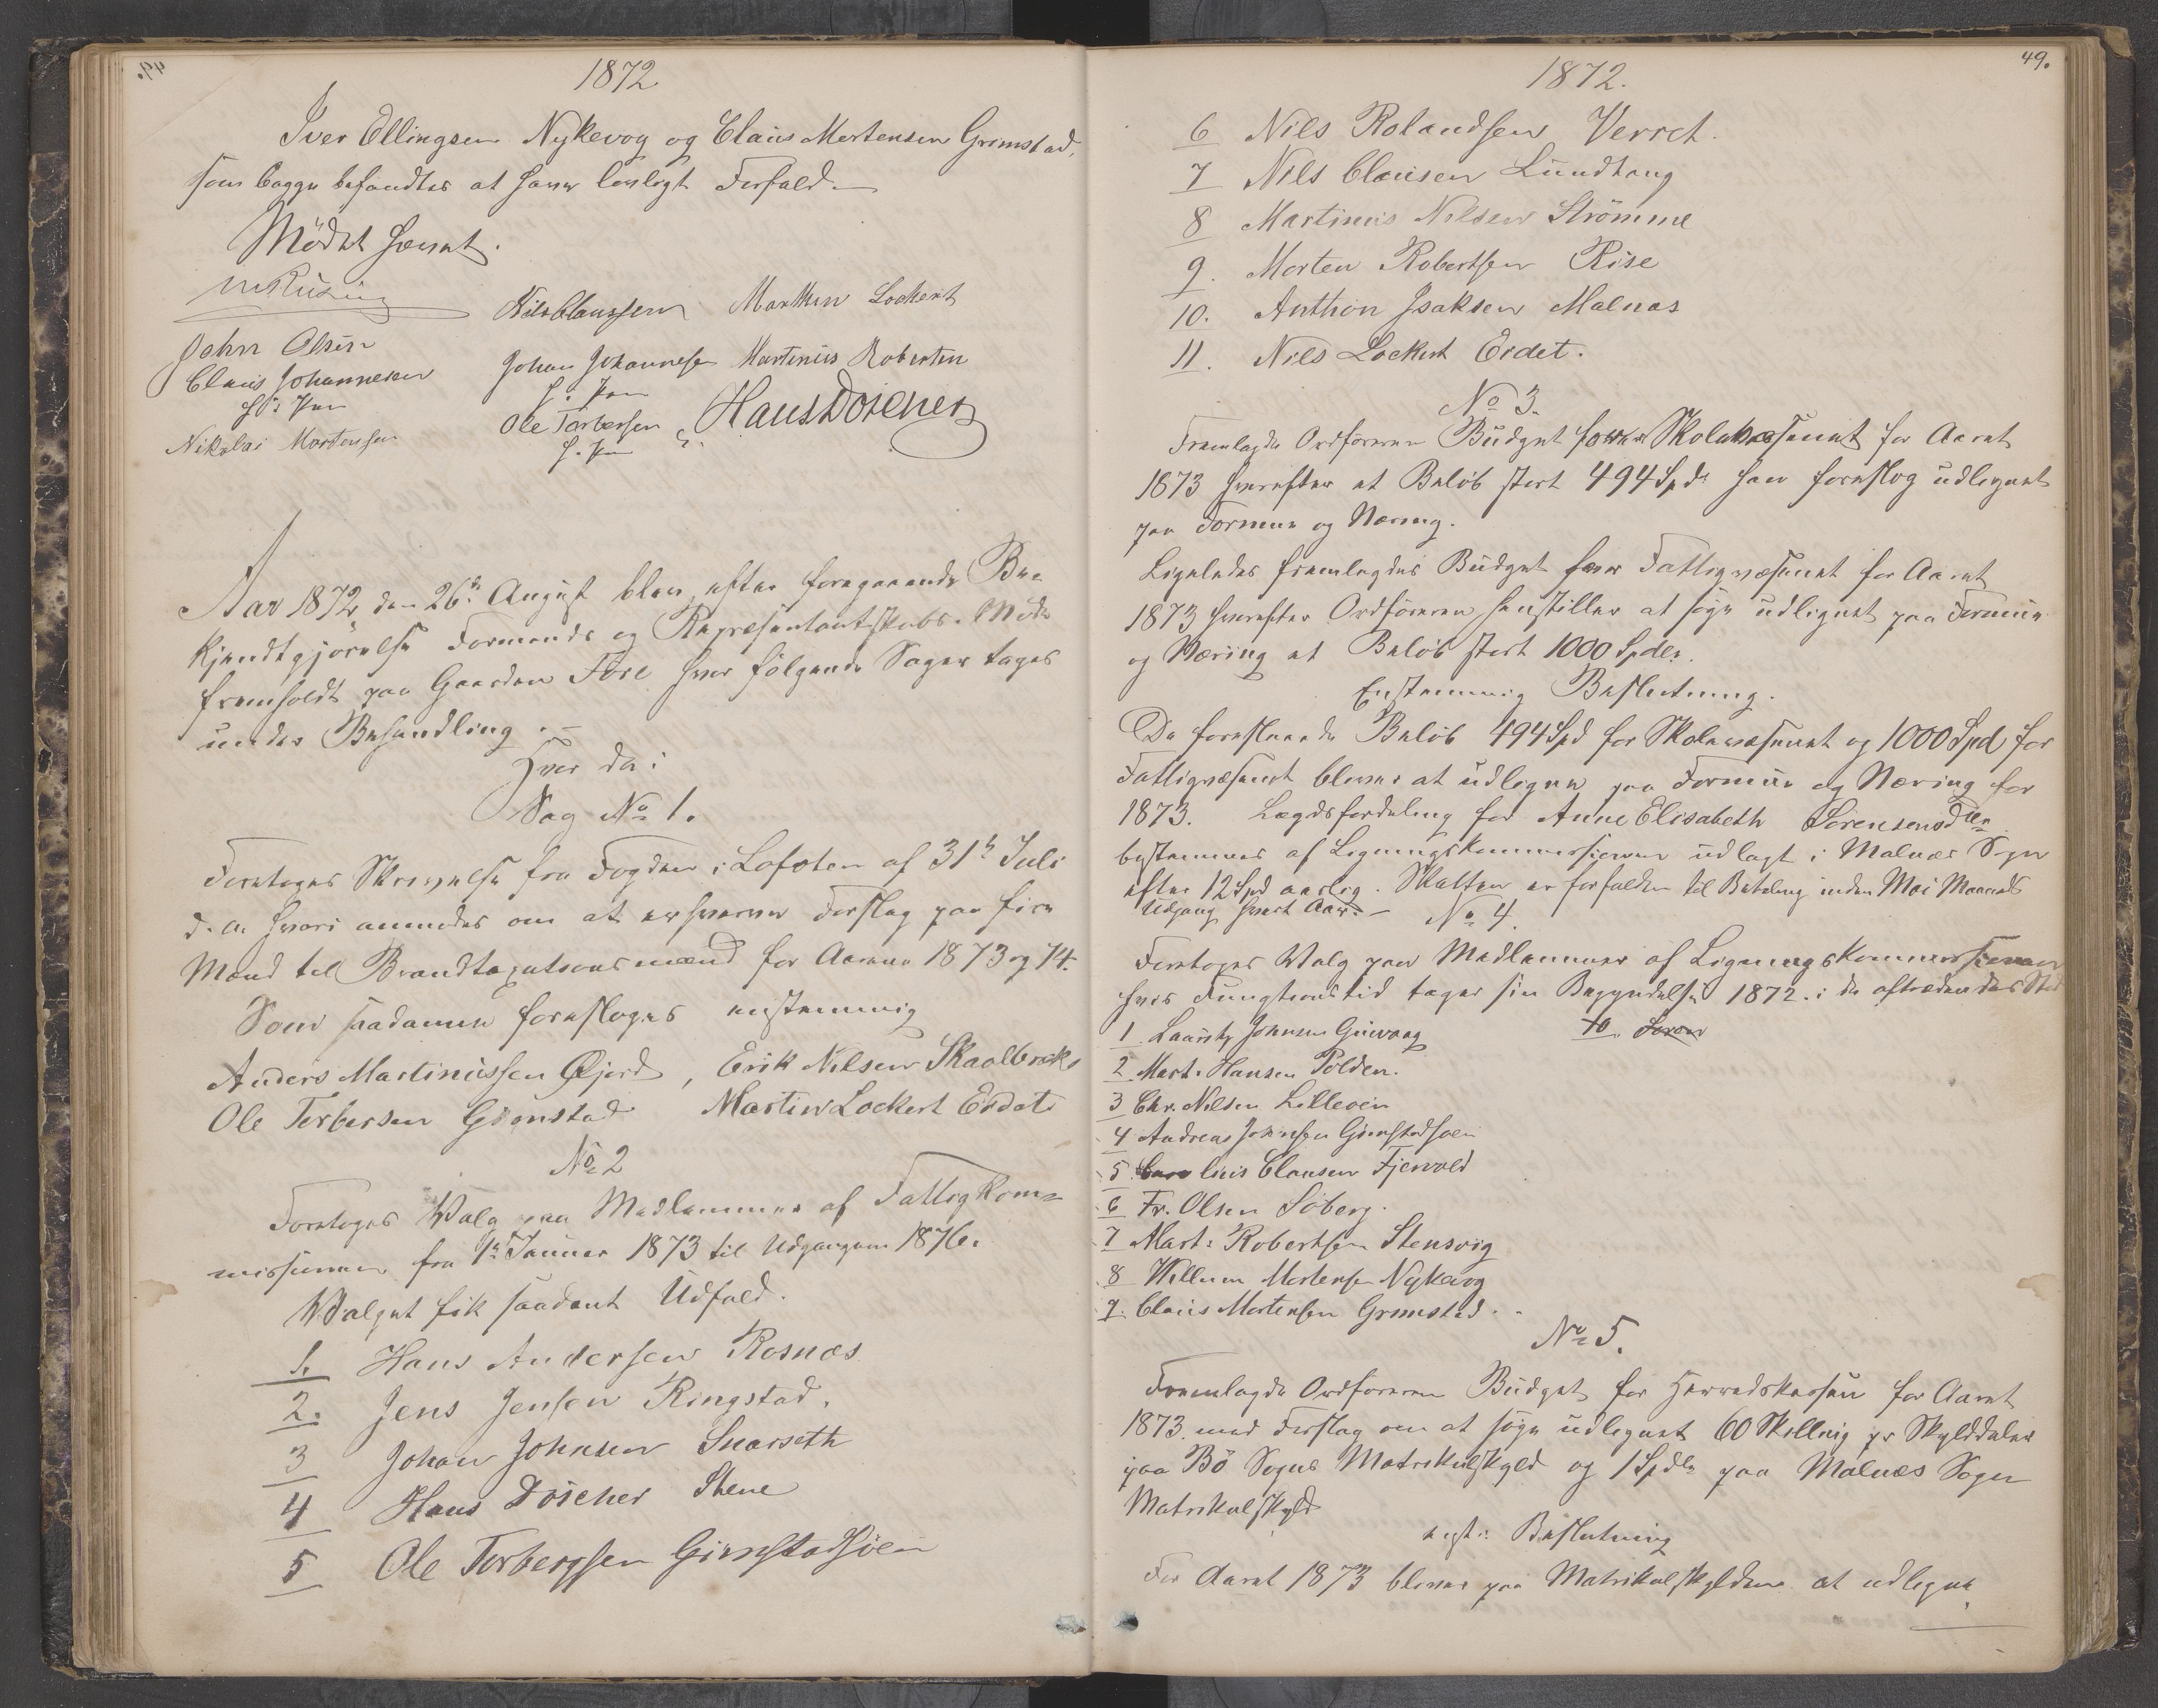 1872
Iver Ellingsen Nykevog og Claus Mortensen Grimstad,
som begge befandtes at have lovligt Forfald.
Mødet hævet.
Nils Clausen Morthen Lockert
John Olsen
Claus Johannesen Johan Johannesen Martinius Robertsen
Nikolai Mortensen Ole Torbersen Hans Doscher
Aar 1872 den 26de August blev, efter foregaaende Be-
kjendtgjørelse Formands og Repræsentantskabs-Møde
fremholdt paa Gaarden Fore hvor følgende Sager toges
under Behandling.-
Hvor da:
Sag No 1.
Foretoges Skrivelse fra Fogden i Lofoten af 31te Juli
d.A. hvori anmodes om at erhverve Forslag paa fire
Mænd til Brandtaxationsmænd for Aarene 1873 og 74.
Som saadanne foresloges enstemmig
Anders Martinussen Øjord, Erik Nilsen Skaalbrek
Ole Torbersen Grimstad Martin Lockert Eidet
No 2
Foretoges Valg paa Medlemmer af Fattigkom-
missionen fra 1ste Januar 1873 til Udgangen 1876.
Valget fik saadant Udfald.
1. Hans Andersen Rosnæs
2. Jens Jensen Ringstad.
3 Johan Johnsen Snarseth
4 Hans Doscher Stene
5 Ole Torbergsen Gimstadsøen
49.
1872.
6 Nils Rolandsen Verret.
7 Nils Clausen Lundtang
8 Martinus Nilsen Strømme
9. Morten Robertsen Rise
10. Anthon Isaksen Malnæs
11. Nils Lockert Eidet.
No 3.
Fremlagde Ordføreren Budget for Skolevæsenet for Aaret
1873 hvorefter et Beløb stort 494 Spd han foreslog udlignet
paa Formue og Næring.
Ligeledes fremlagdes Budget for Fattigvæsenet for Aaret
1873 hvorefter Ordføreren henstiller at søge udlignet paa Formue
og Næring et Beløb stort 1000 Spdlr.
Enstemmig Beslutning.
De foreslaaede Beløb 494 Spd for Skolevæsenet og 1000 Spd for
Fattigvæsenet bliver at udligne paa Formue og Næring for
1873. Lægdsfordeling for Anne Elisabeth Sørensensdtr
bestemmes af Ligningskommissionen udlagt i Malnæs Sogn
efter 12 Spd aarlig. Skatten er forfalden til Betaling inden Mai Maaneds
Udgang hvert Aar.-
No 4.
Foretoges Valg paa Medlemmer af Ligningskommissionen
hvis Fungtionstid tager sin Begyndelse 1872. i de aftrædendes Sted
1. Lauritz Johnsen Guvaag 10.
2. Mart. Hansen Pölden.
3 Chr. Nilsen Lilleøen
4 Andreas Johnsen Gimstadsøen
5 linis Clausen Fjervold
6 Fr. Olsen Søberg.
7 Mart: Robertsen Stensvig
8 Willum Mortensen Nykvog
9. Claus Mortensen Grimstad.
No 5.
Fremlagde Ordføreren Budget for Herredskassen for Aaret
1873. med Forslag om at søge udlignet 60 Skilling pr Skylddaler
paa Bø Sogns Matrikulskyld og 1 Spdlr paa Malnæs Sogns
Matrikulskyld
enst: Beslutning
For Aaret 1873 bliver paa Matrikulskylden at udligne